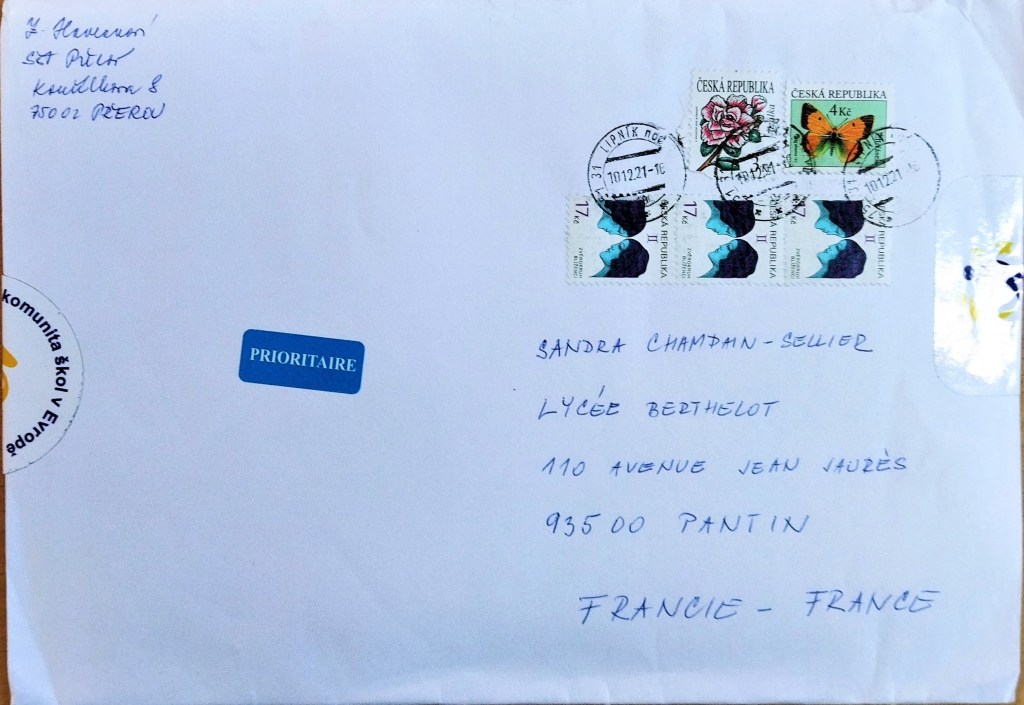 75002 PŘEROV
ČESKÁ REPUBLIKA
ČESKÁ REPUBLIKA
4 Kč
LIPNÍK
10.12.21-16
10.12.21
10.12.21
17 Kč
ČESKÁ REPUBLIKA
II
ZVĚROKRUH
BLÍŽENCI
17 Kč
ČESKÁ REPUBLIKA
II
ZVĚROKRUH
BLÍŽENCI
17 Kč
ČESKÁ REPUBLIKA
II
ZVĚROKRUH
BLÍŽENCI
komunita škol v Evropě
PRIORITAIRE
SANDRA CHAMPAIN-SELLIER
LYCÉE BERTHELOT
110 AVENUE JEAN JAURÈS
93500 PANTIN
FRANCIE - FRANCE